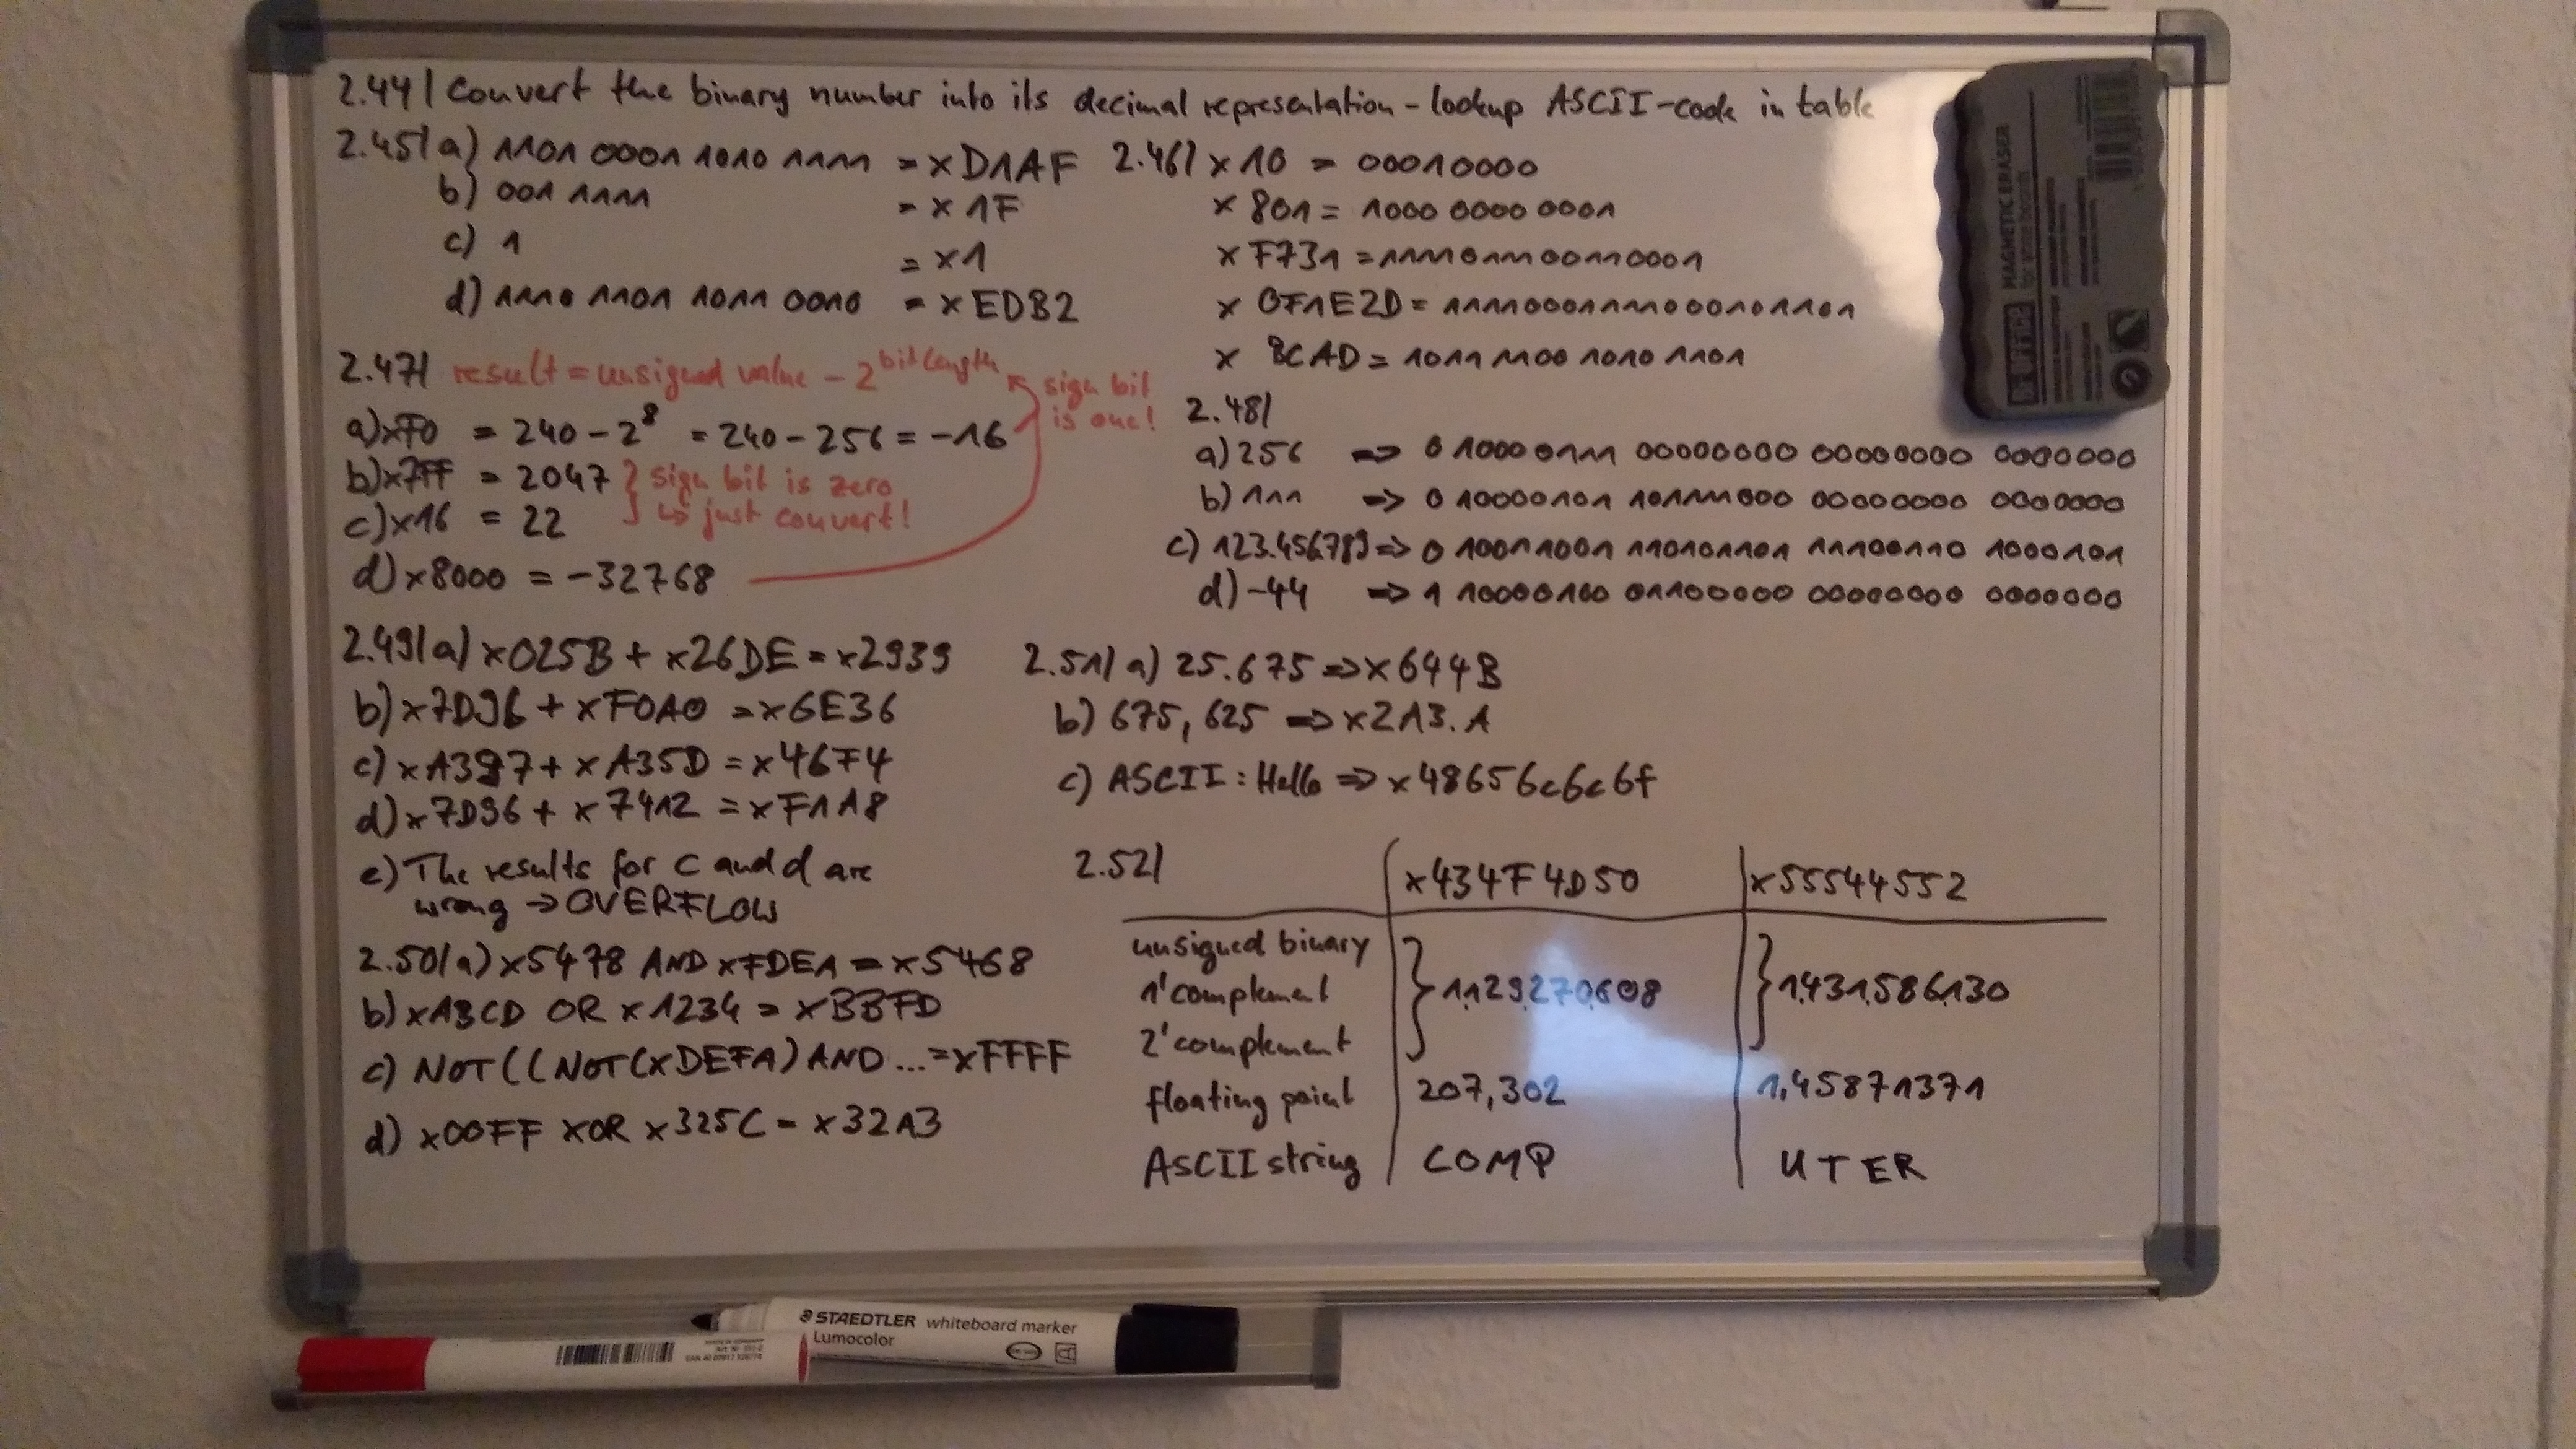 2.44| Convert the binary number into its decimal representation - lookup ASCII-code in table
2.45| a) 1101 0001 1010 1111 = xD1AF
b) 001 1111 = x1F
c) 1 = x1
d) 1110 1101 1011 0010 = xEDB2
2.46| x10 = 00010000
x801 = 1000 0000 0001
xF731 = 1111011100110001
x0F1E2D = 11110001111000101101
xBCAD = 1011 1100 1010 1101
2.47| result = unsigned value - 2^bitlength
sign bit
is one!
a) xF0 = 240 - 2^8 = 240 - 256 = -16
b) x7FF = 2047
c) x16 = 22
} sign bit is zero
↳ just convert!
d) x8000 = -32768
2.48|
a) 256 => 0 10000111 00000000 00000000 0000000
b) 111 => 0 10000101 10111000 00000000 0000000
c) 123.456789 => 0 10011001 110101101 11100110 1000101
d) -44 => 1 10000100 01100000 00000000 0000000
2.49| a) x025B + x26DE = x2939
b) x7D96 + xF0A0 = x6E36
c) xA397 + xA35D = x46F4
d) x7D96 + x7412 = xF1A8
e) The results for c and d are
wrong -> OVERFLOW
2.50| a) x5478 AND xFDEA = x5468
b) xABCD OR x1234 = xBBFD
c) NOT((NOT(xDEFA) AND ... = xFFFF
d) x00FF XOR x325C = x32A3
2.51| a) 25.675 => x644B
b) 675,625 => x2A3.A
c) ASCII: Hello => x48656c6c6f
2.52| x434F4D50 x55544552
unsigned binary
1'complement } 1,129,270,608 } 1,431,586,130
2'complement
floating point 207,302 1,45871371
ASCII string COMP UTER
MAGNETIC ERASER
for white boards
STAEDTLER whiteboard marker
Lumocolor